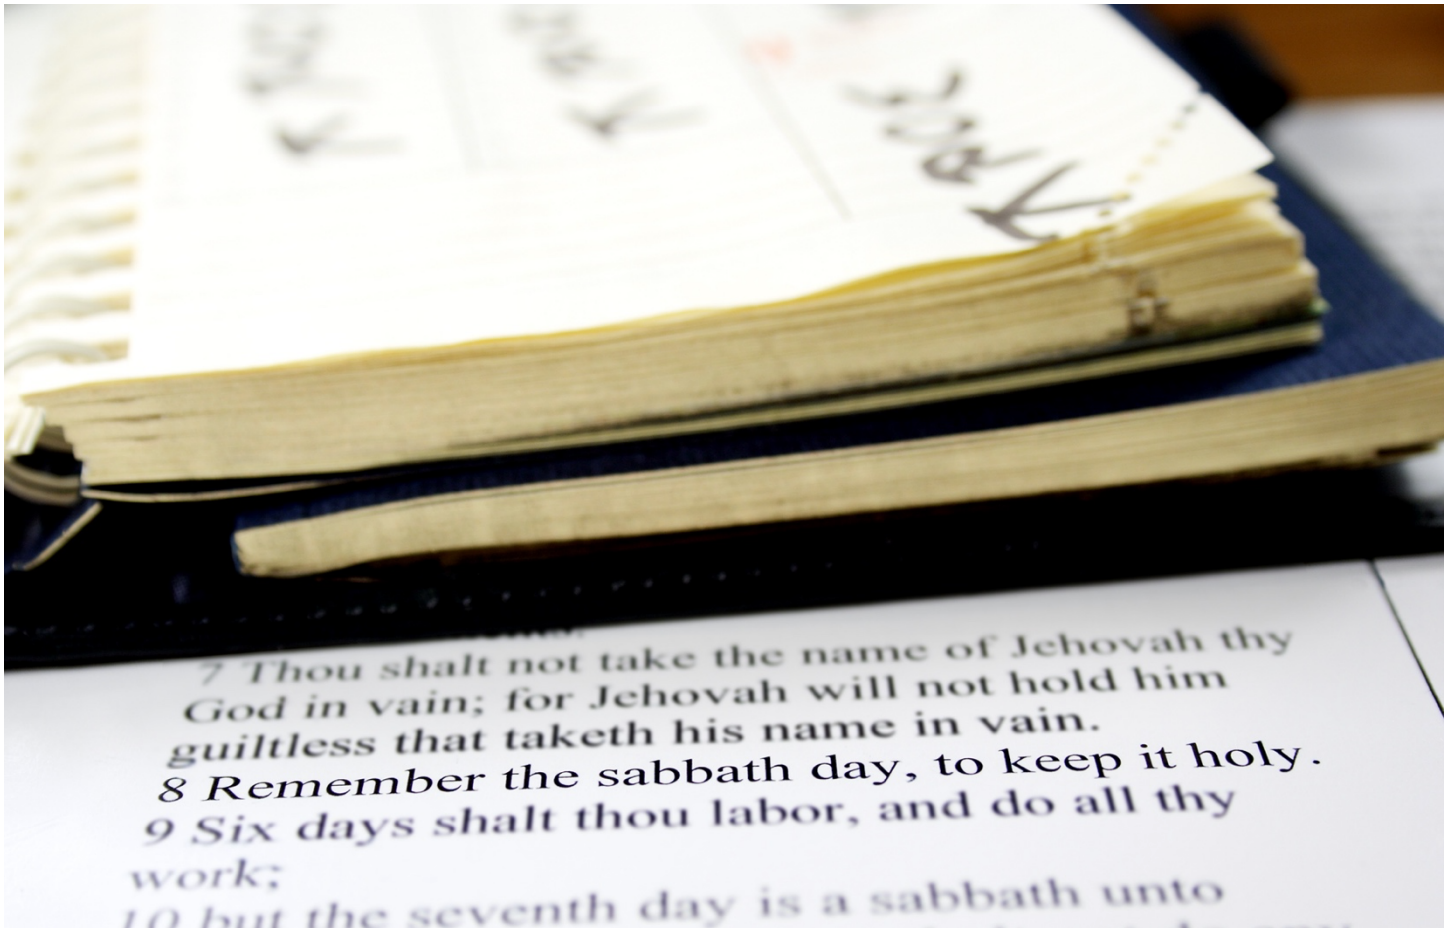 WORK
7 Thou shalt not take the name of Jehovah thy
God in vain; for Jehovah will not hold him
guiltless that taketh his name in vain.
8 Remember the sabbath day, to keep it holy.
9 Six days shalt thou labor, and do all thy
work;
10 but the seventh day is a sabbath unto